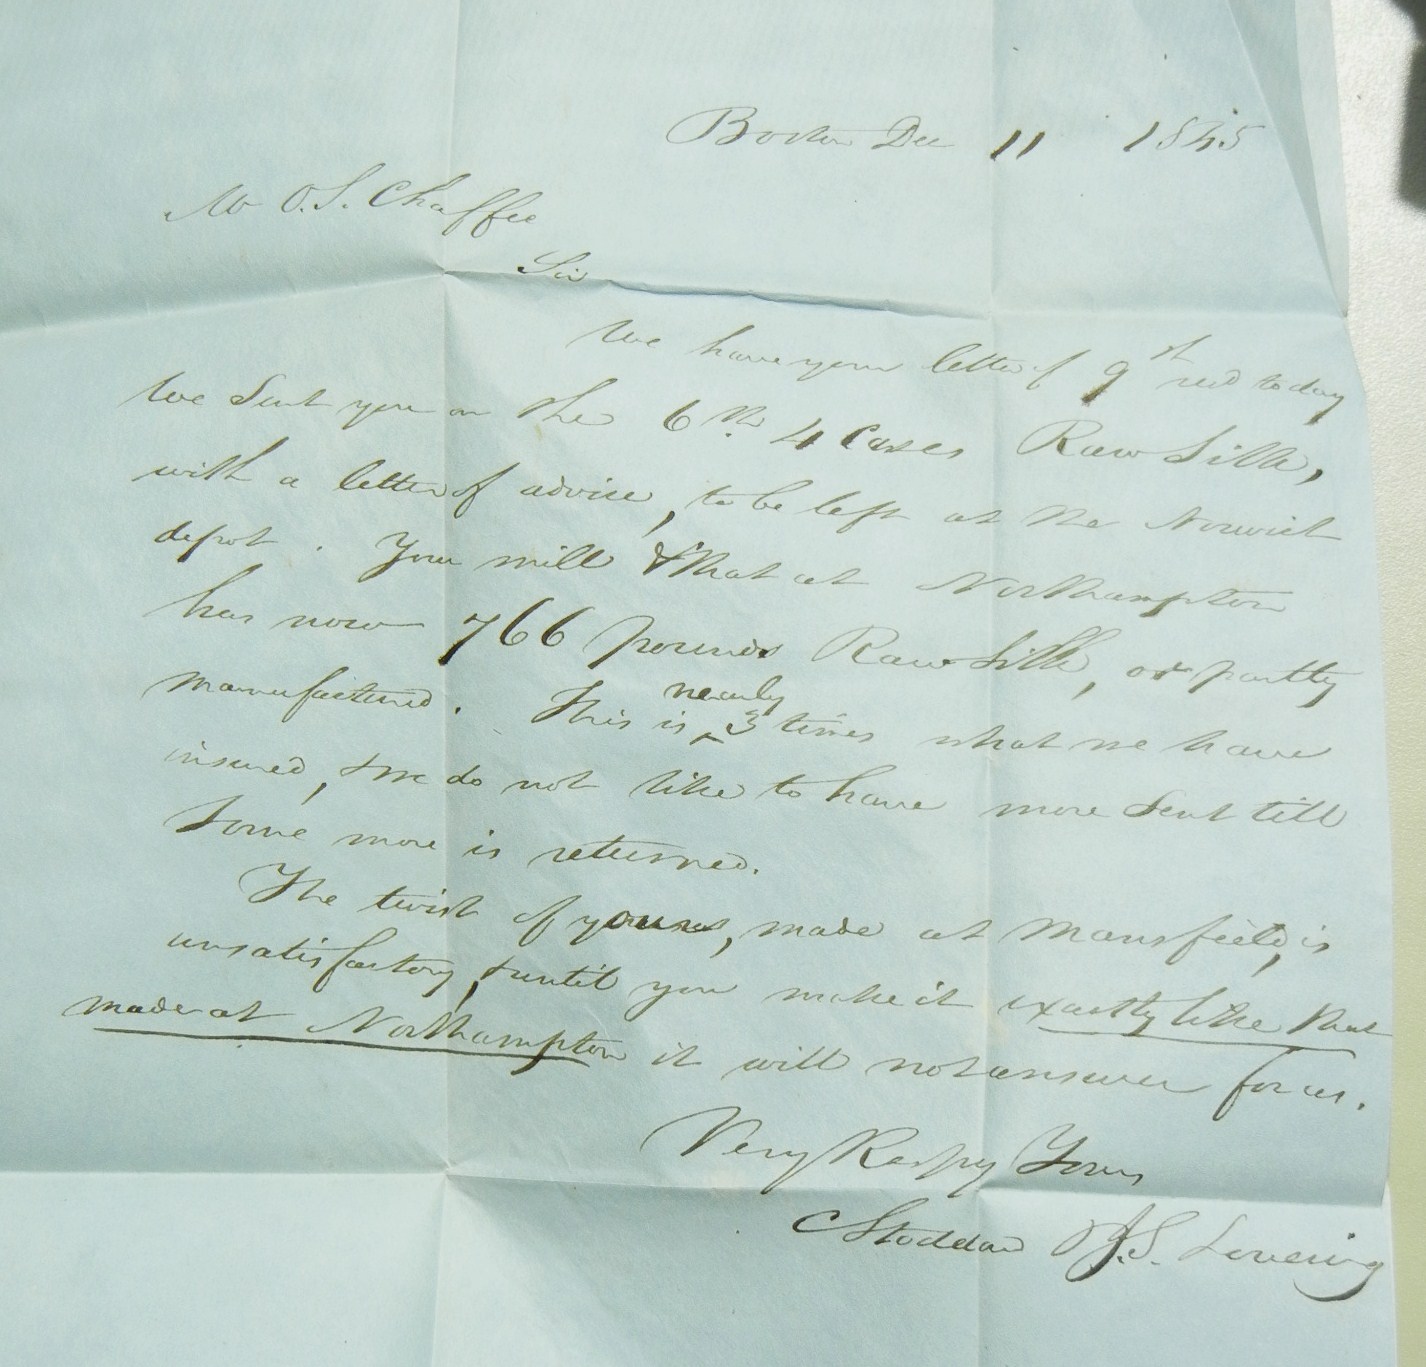 Boston Dec 11 1845
Mr O.S. Chaffee
Sir
We have your letter of 9th recd to day
We Sent you on the 6th. 4 Cases Raw Silk,
with a letter of advice, to be left at the Norwich
depot. Your mill & that at Northampton
has now 766 pounds Raw Silk, or partly
manufactured. This is nearly 3 times what we have
insured, & we do not like to have more Sent till
Some more is returned.
The twist of yours, made at Mansfield, is
unsatisfactory, & until you make it exactly like that
made at Northampton it will not answer for us.
Very Respy Yours
Stoddard & J.S. Lovering